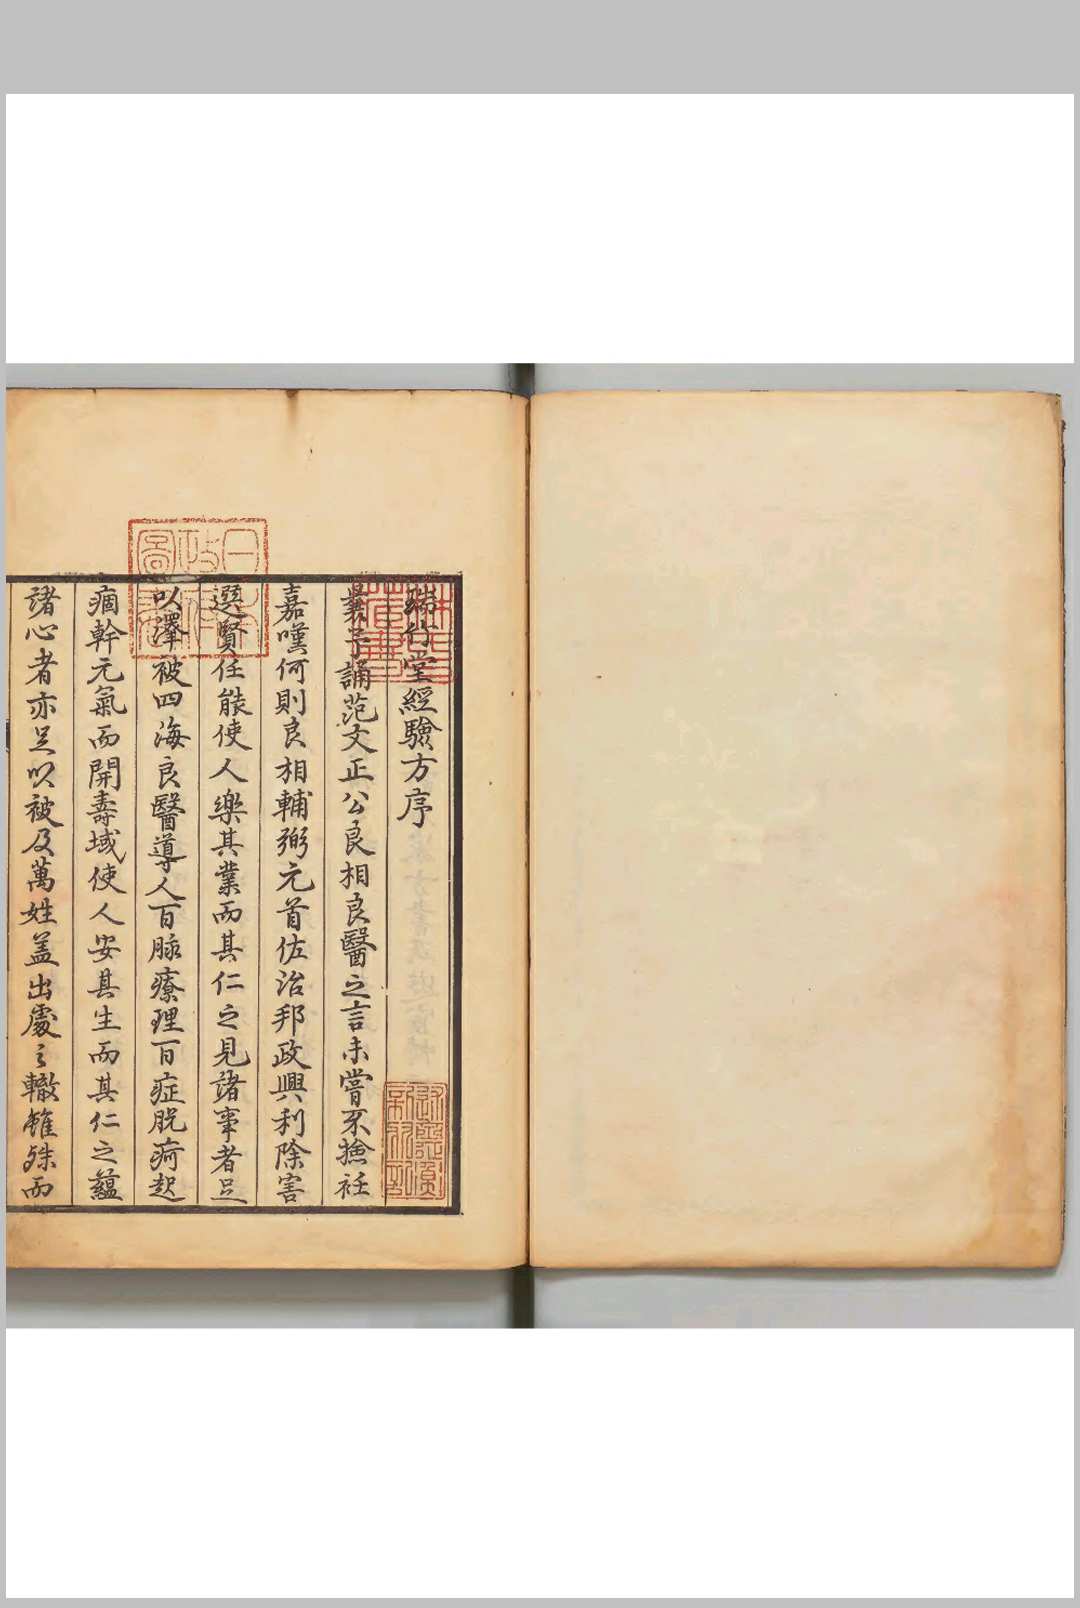 瑞竹堂經驗方序
曩予誦范文正公良相良醫之言未嘗不撫衽
嘉嘆何則良相輔弼元首佐治邦政興利除害
選賢任能使人樂其業而其仁之見諸事者足
以澤被四海良醫導人百脉療理百症脫疴起
痼幹元氣而開壽域使人安其生而其仁之蘊
諸心者亦足以被及萬姓蓋出處之轍雖殊而
日本政府圖書